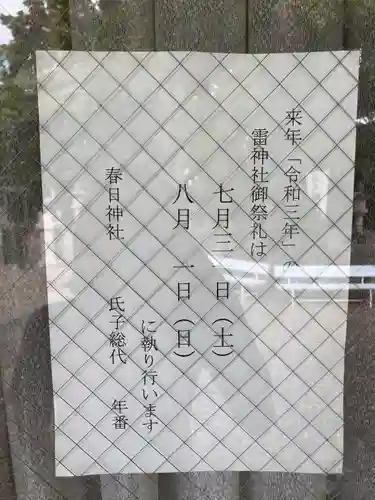 来年「令和三年」の
雷神社御祭礼は
七月三一日(土)
八月 一日(日)
に執り行います
春日神社 氏子総代 年番